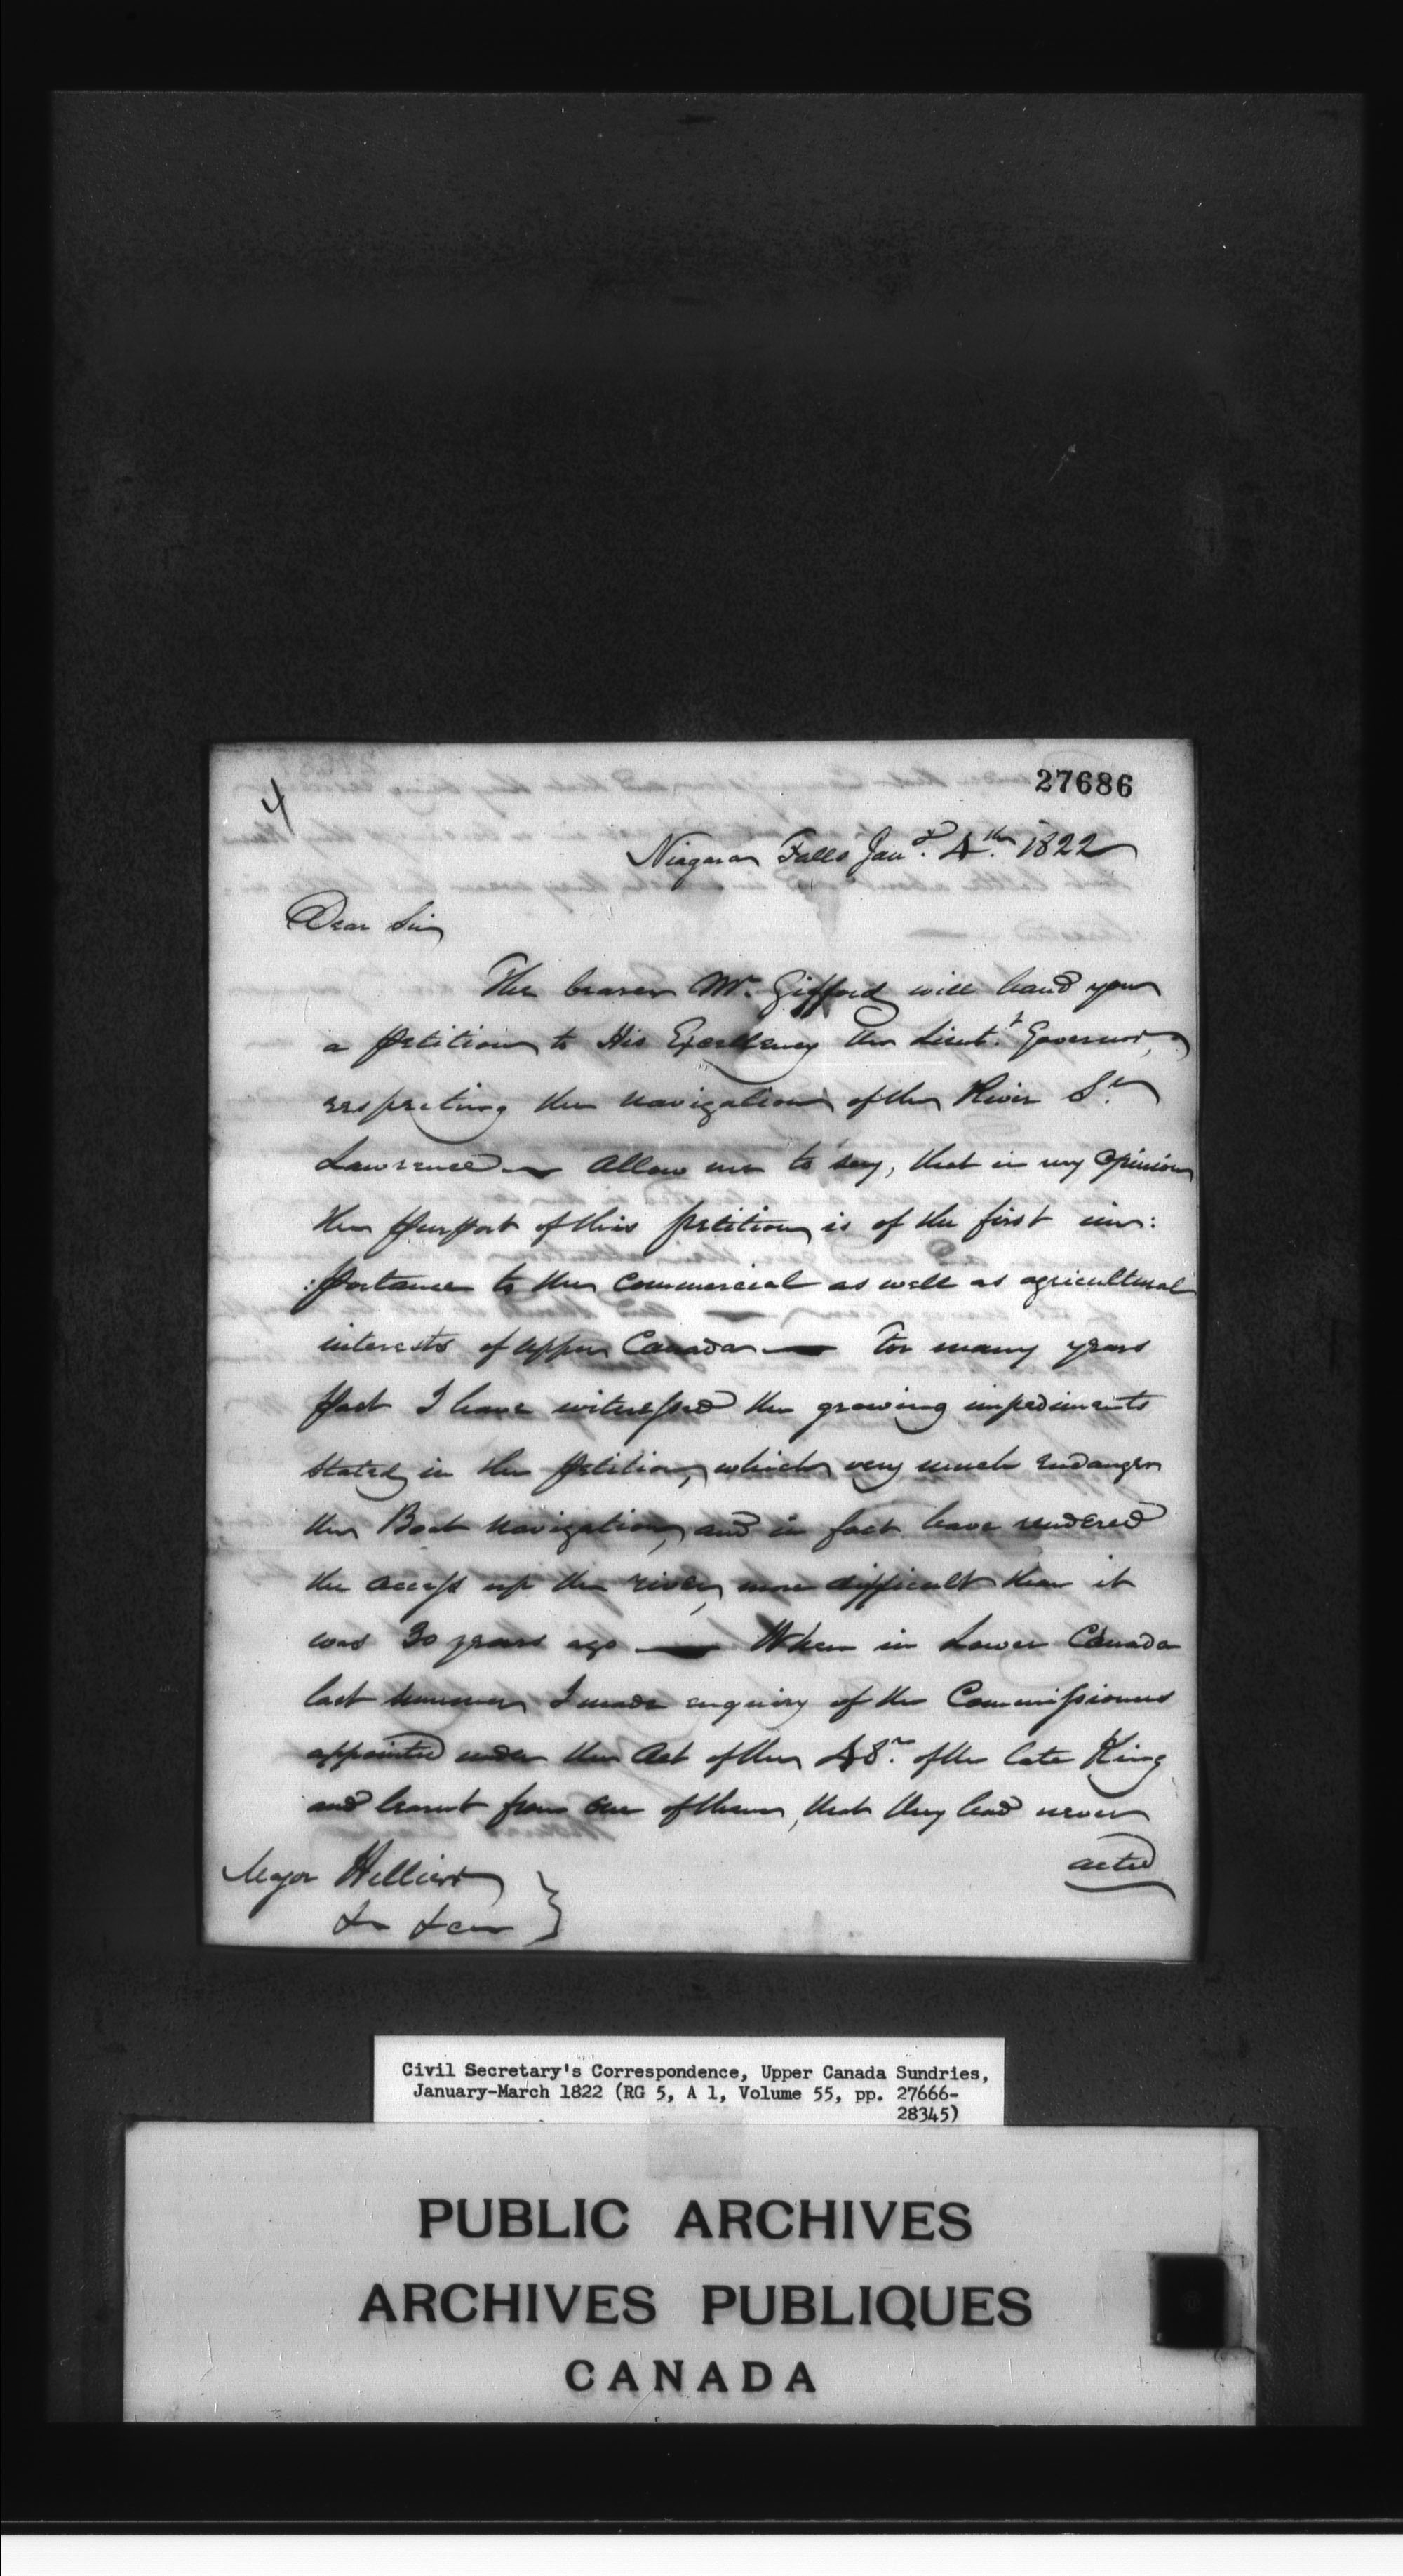 27686
4
Niagara Falls Jany. 4th. 1822
Dear Sir
The bearer Mr. Gifford will hand you
a petition to His Excellency the Lieut. Governor,
respecting the navigation of the River St.
Lawrence — Allow me to say, that in my Opinion
the purport of this petition is of the first im:
:portance to the Commercial as well as agricultural
interests of Upper Canada — For many years
past I have witnessed the growing impediments
stated in the petition, which very much endanger
the Boat navigation, and in fact have rendered
the access up the river, more difficult than it
was 30 years ago — When in Lower Canada
last summer I made enquiry of the Commissioners
appointed under the Act of the 48th. of the late King
and learnt from one of them, that they had never
acted
Major Hillier
&c &c &c }
Civil Secretary's Correspondence, Upper Canada Sundries,
January-March 1822 (RG 5, A 1, Volume 55, pp. 27666-
28345)
PUBLIC ARCHIVES
ARCHIVES PUBLIQUES
CANADA